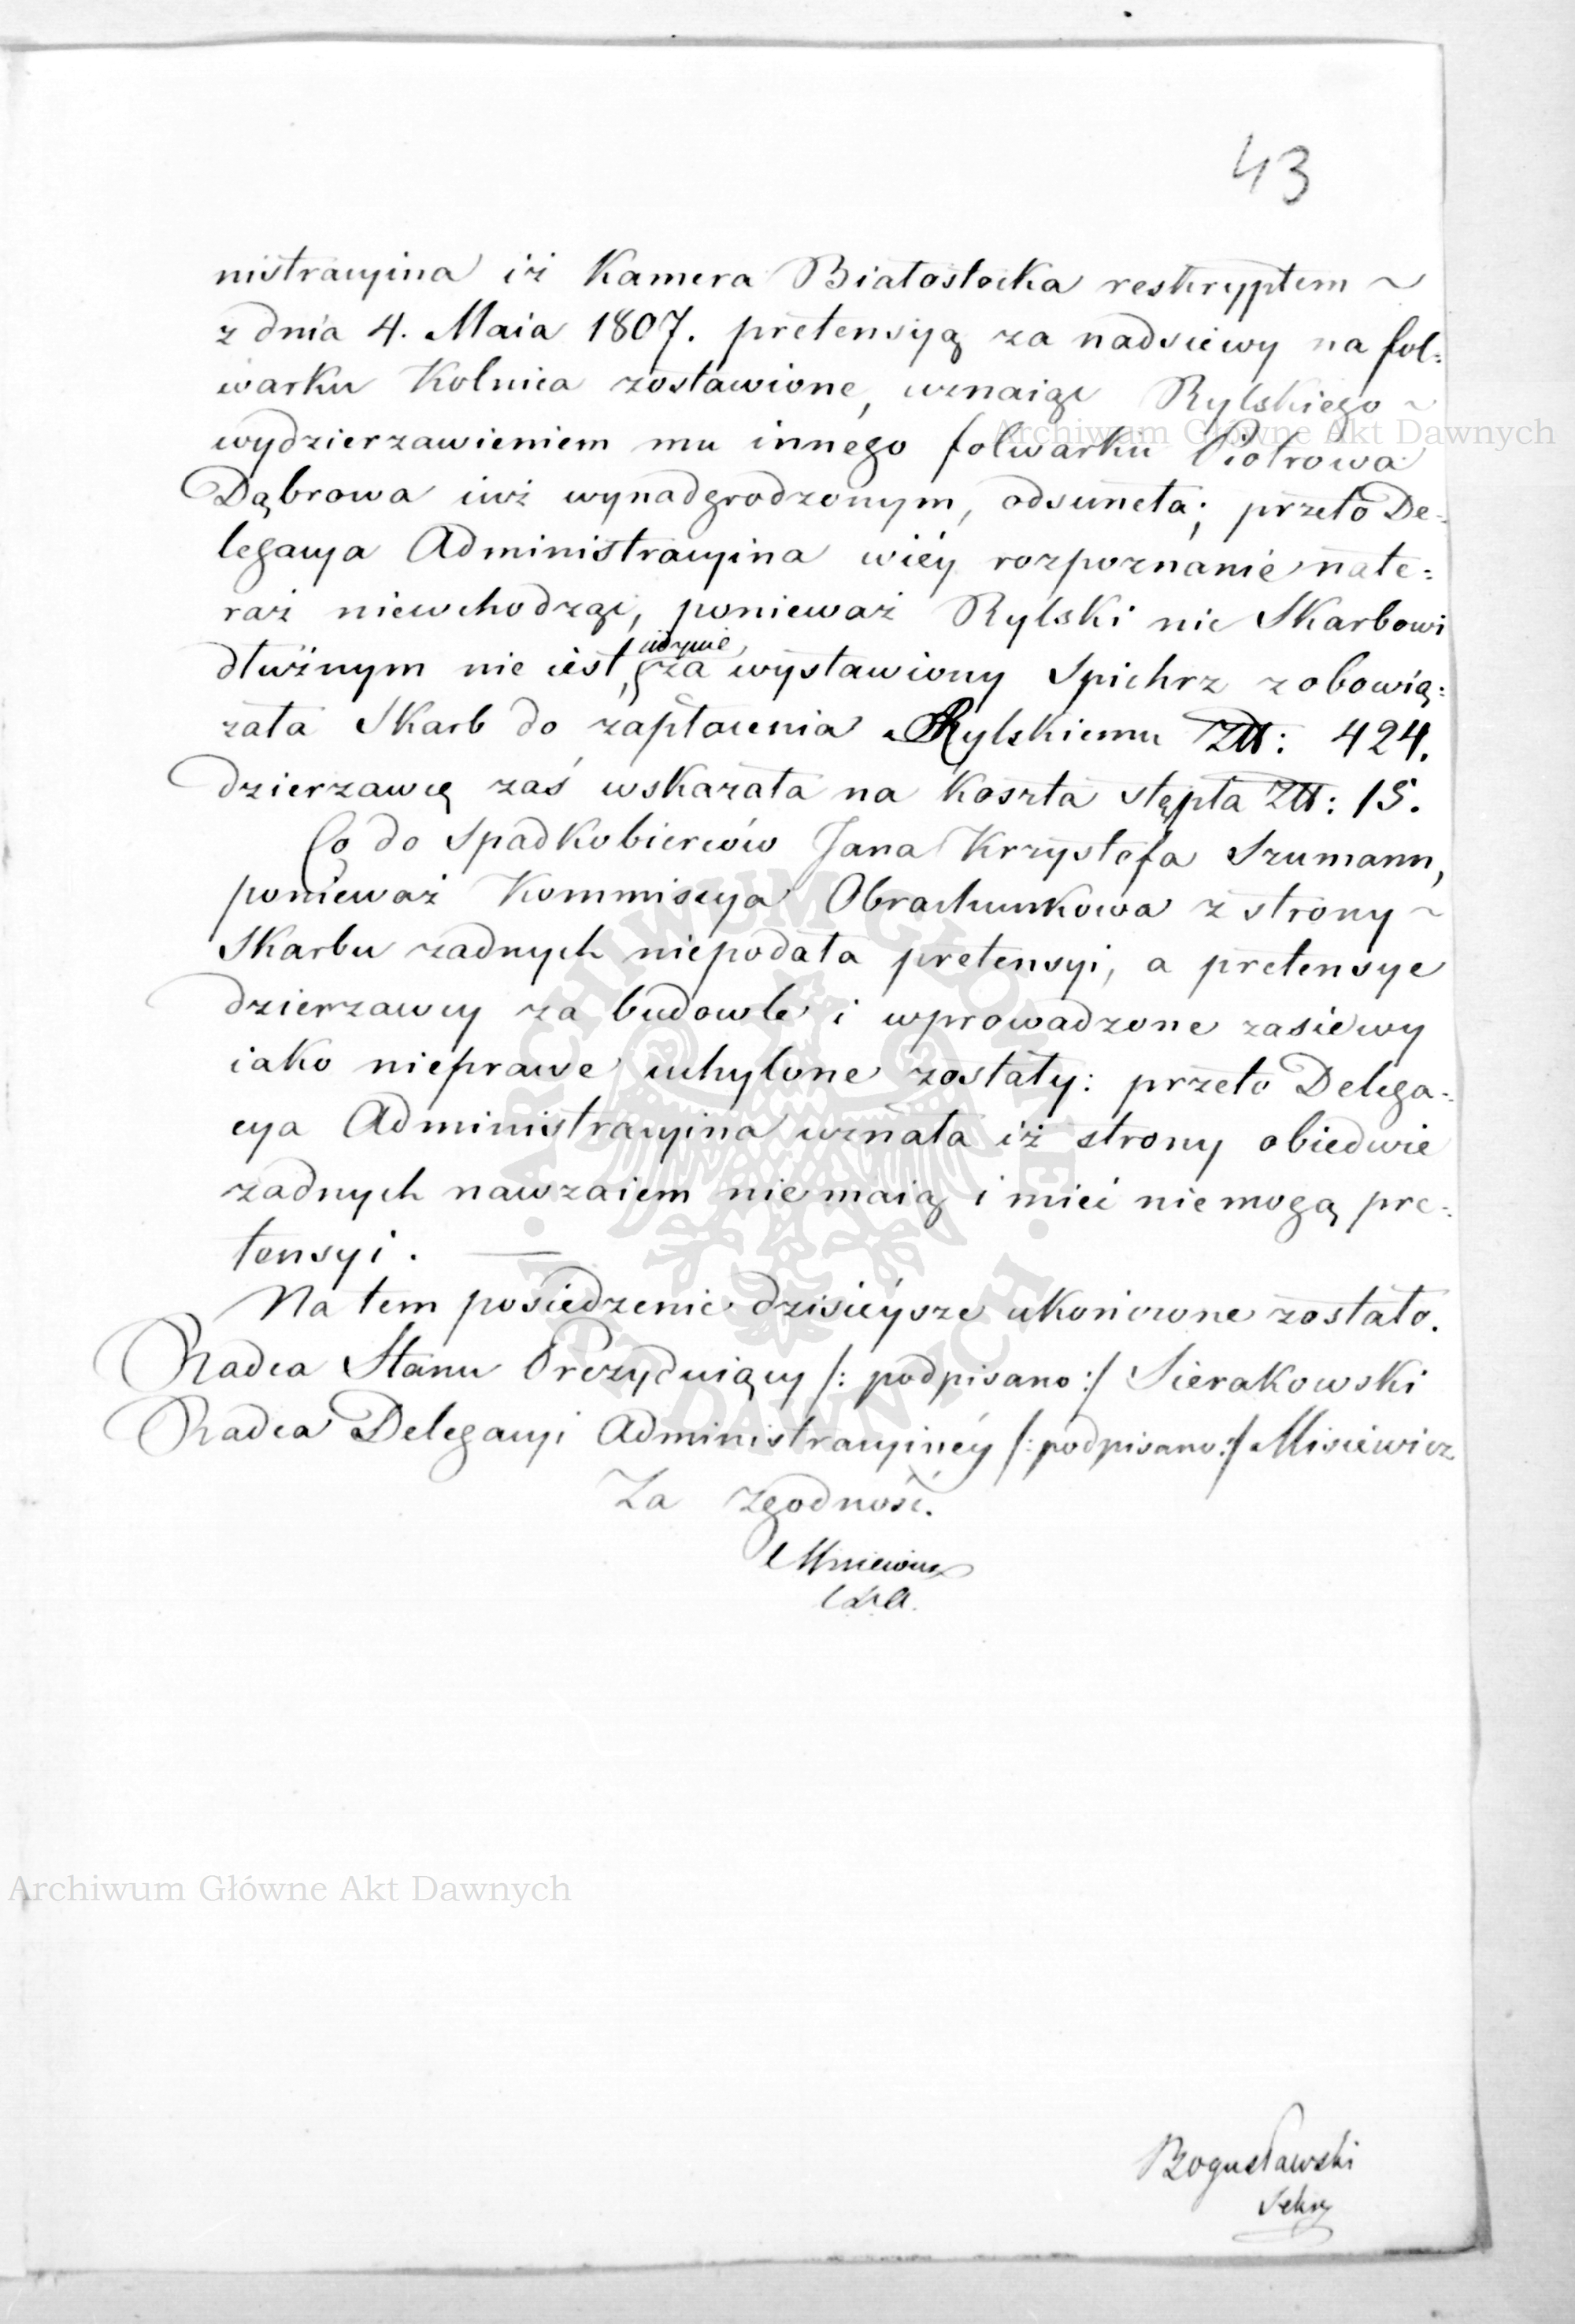 43
nistracyina iż Kamera Białostocka reskryptem ~
z dnia 4. Maia 1807. pretensyą za nadsiewy na fol:
warku Kolnica zostawione, uznaiąc Rylskiego ~
wydzierzawieniem mu innego folwarku Piotrowa
Archiwum Główne Akt Dawnych
Dąbrowa iuż wynadgrodzonym, odsuneła; przeto De:
legacya Administracyina wiéy rozpoznanie nate:
raż niewchodząc, ponieważ Rylski nic Skarbowi
dłużnym nie iest, jedynie za wystawiony Spichrz zobowią:
zała Skarb do zapłacenia Rylskiemu Złł: 424.
dzierzawcę zaś wskazała na koszta stępla Złł: 15.
Co do Spadkobierców Jana Krzysztofa Szumann,
ponieważ Kommissya Obrachunkowa z strony ~
Skarbu zadnych niepodała pretensyi, a pretensye
dzierzawcy za budowle i wprowadzone zasiewy
iako nieprawe uchylone zostały: przeto Delega:
cya Administracyina uznała iż strony obiedwie
zadnych nawzaiem nie maią i mieć nie mogą pre:
tensyi. —
Na tem posiedzenie dzisieysze ukończone zostało.
Radca Stanu Prezyduiący /: podpisano :/ Sierakowski
Radca Delegacyi Administracyinéy /: podpisano :/ Misiewicz
Za zgodność.
Misiewicz
ARCHIWUM GŁÓWNE AKT DAWNYCH
Archiwum Główne Akt Dawnych
Bogusławski
Sekr